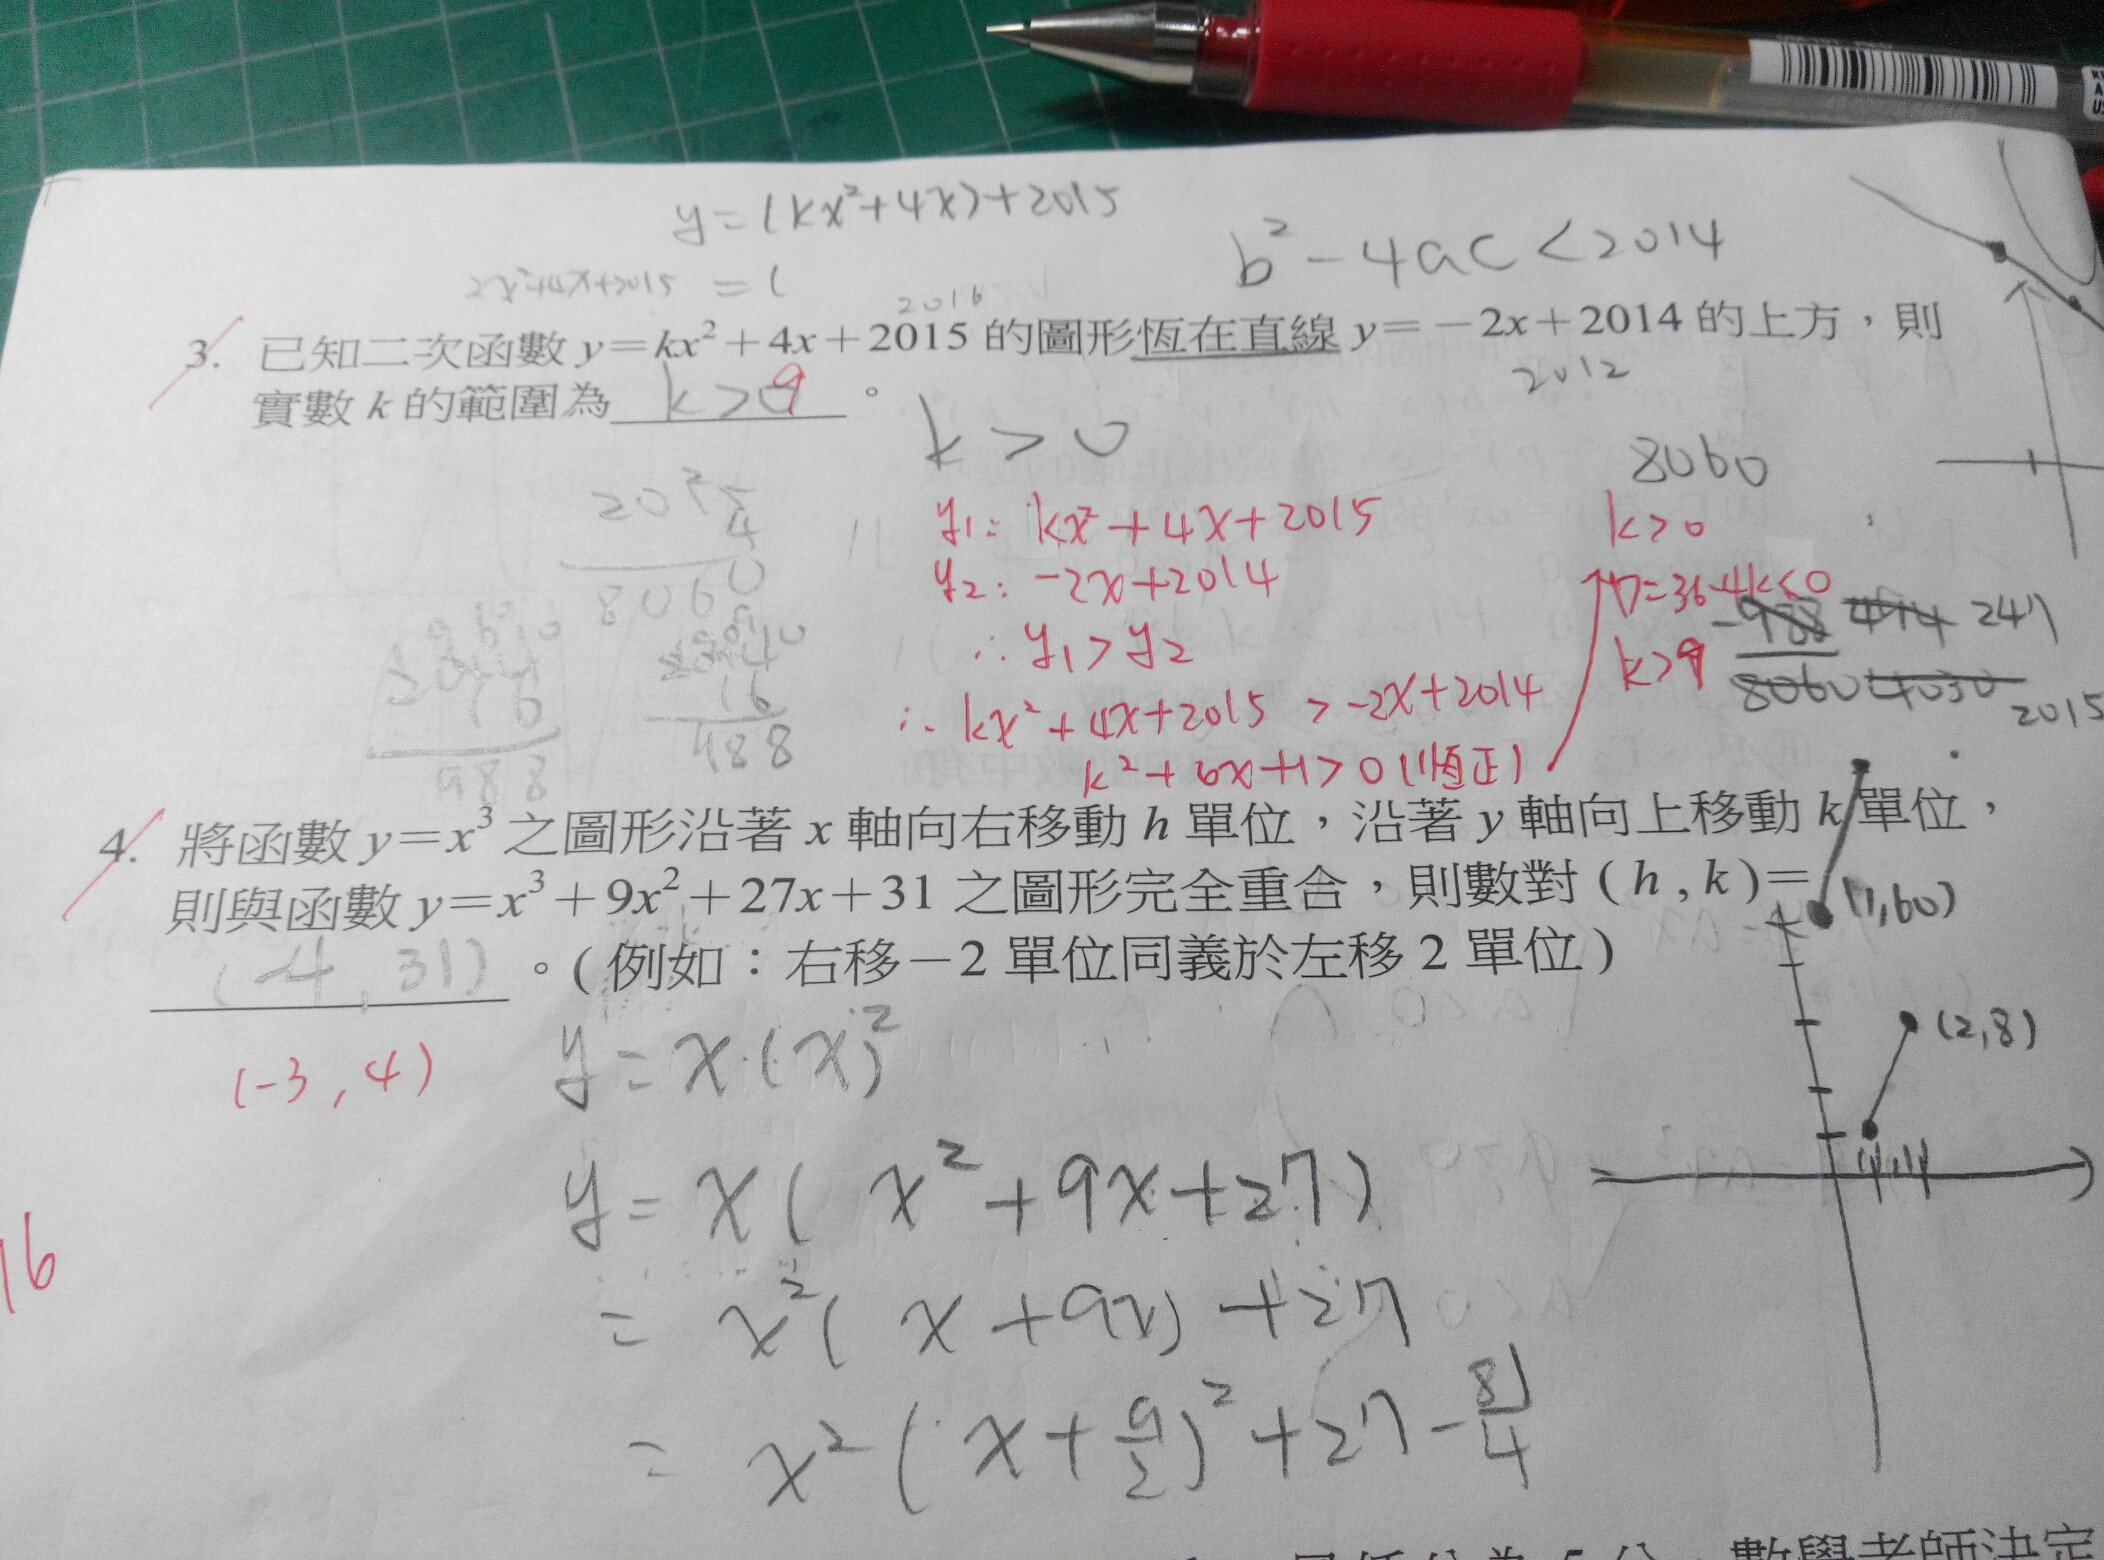 y=(kx²+4x)+2015
b²-4ac<2014
2x²+4x+2015 =(
2016
3. 已知二次函數 y=kx²+4x+2015 的圖形恆在直線 y=-2x+2014 的上方，則
2012
實數 k 的範圍為 k>9 。
k>0
8060
2015
4
8060
16
988
16
488
y₁: kx²+4x+2015
y₂: -2x+2014
∴ y₁>y₂
∴ kx²+4x+2015 >-2x+2014
k²+6x+1>0 (恆正)
k>0
D=36-4k<0
k>9
-988 494 247
8060 4030 2015
4. 將函數 y=x³ 之圖形沿著 x 軸向右移動 h 單位，沿著 y 軸向上移動 k 單位，
則與函數 y=x³+9x²+27x+31 之圖形完全重合，則數對 ( h , k )=
(-4, 31) 。( 例如：右移-2 單位同義於左移 2 單位 )
(-3, 4)
(1,60)
(2,8)
y=x(x)²
y=x( x²+9x+27)
= x²( x+9x) +27
= x²( x+9/2)²+27-81/4
16
數學老師決定